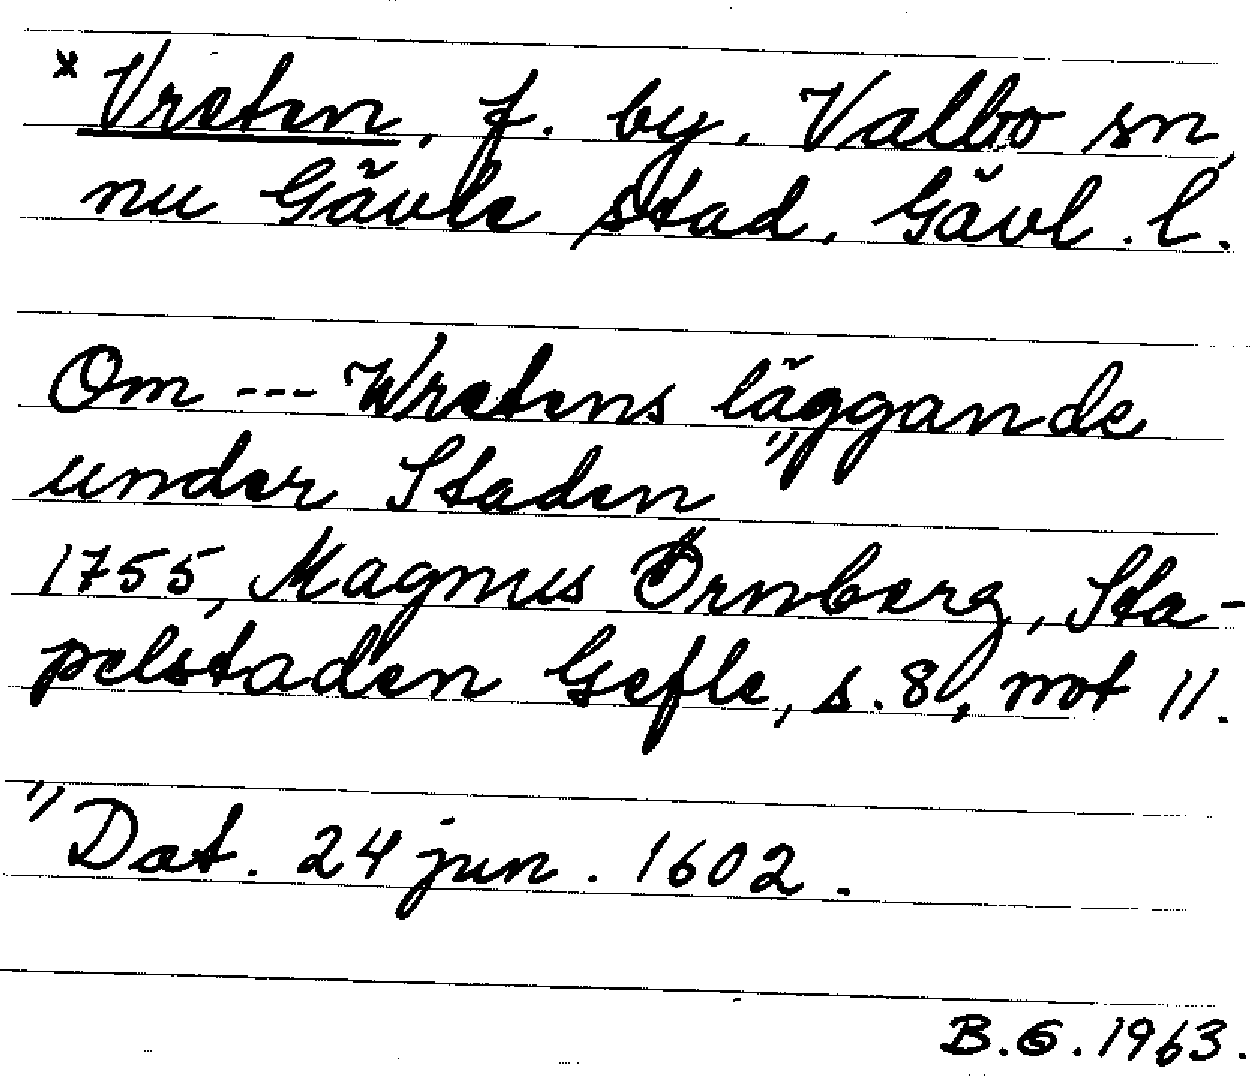 * Vreten, f. by, Valbo sn,
nu Gävle stad, Gävl. l.
Om --- Wretens läggande
under Staden 1)
1755, Magnus Örnberg, Sta-
pelstaden Gefle, s. 8, not 11.
1) Dat. 24 jun. 1602.
B.G. 1963.